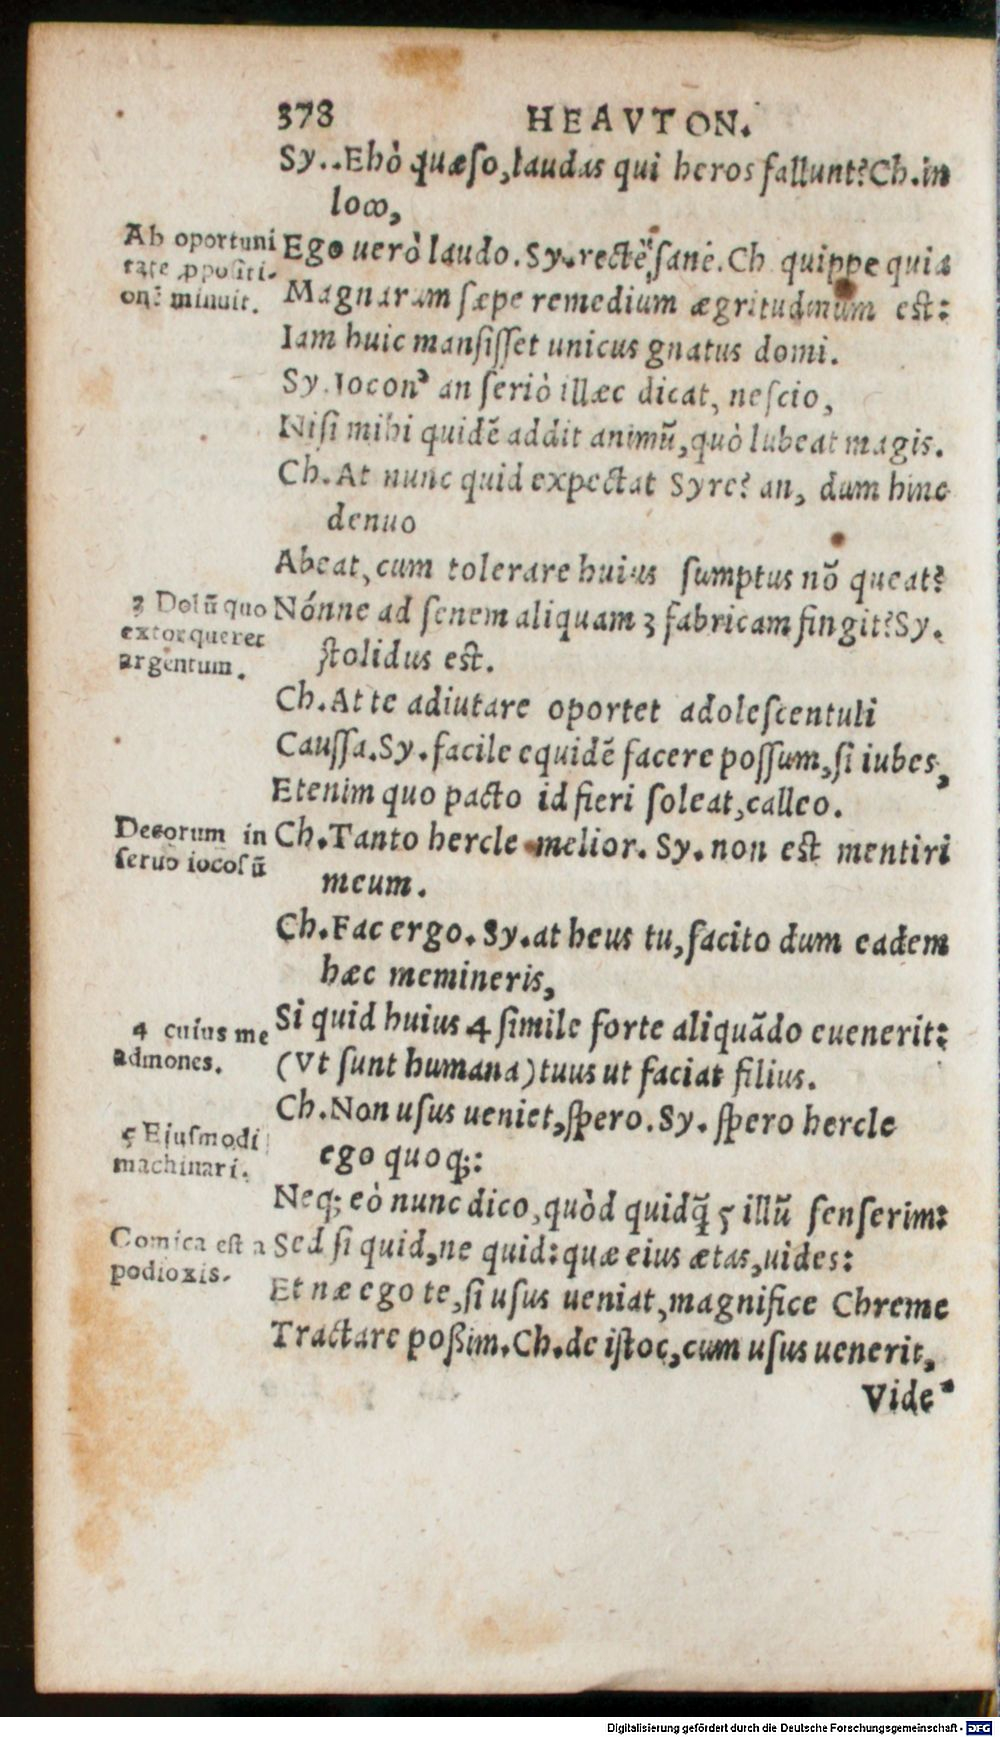 378 HEAVTON.
Sy..Ehò quæso,laudas qui heros fallunt?Ch.in
loco,
Ab oportuni
tate ꝓpositi-
onē minuit.
Ego uerò laudo.Sy.rectè sanè.Ch quippe quia
Magnarum sæpe remedium ægritudinum est:
Iam huic mansisset unicus gnatus domi.
Sy.Iocon' an seriò illæc dicat, nescio,
Nisi mihi quidē addit animū,quò lubeat magis.
Ch.At nunc quid expectat Syre? an, dum hinc
denuo
Abeat,cum tolerare huius sumptus nō queat?
3 Dolū quo
extorqueret
argentum.
Nónne ad senem aliquam 3 fabricam fingit?Sy.
stolidus est.
Ch.At te adiutare oportet adolescentuli
Caussa.Sy.facile equidē facere possum,si iubes,
Etenim quo pacto id fieri soleat,calleo.
Decorum in
seruo iocosū
Ch.Tanto hercle melior. Sy.non est mentiri
meum.
Ch.Fac ergo.Sy.at heus tu,facito dum eadem
hæc memineris,
4 cuius me
admones.
Si quid huius 4 simile forte aliquādo euenerit:
(Vt sunt humana)tuus ut faciat filius.
Ch.Non usus ueniet,spero.Sy. spero hercle
ego quoq;:
5 Eiusmodi
machinari.
Neq; eò nunc dico,quòd quidq̄ 5 illū senserim:
Comica est a
podioxis.
Sed si quid,ne quid:quæ eius ætas,uides:
Et næ ego te,si usus ueniat,magnifice Chreme
Tractare poßim.Ch.de istoc,cum usus uenerit,
Vide
Digitalisierung gefördert durch die Deutsche Forschungsgemeinschaft - DFG